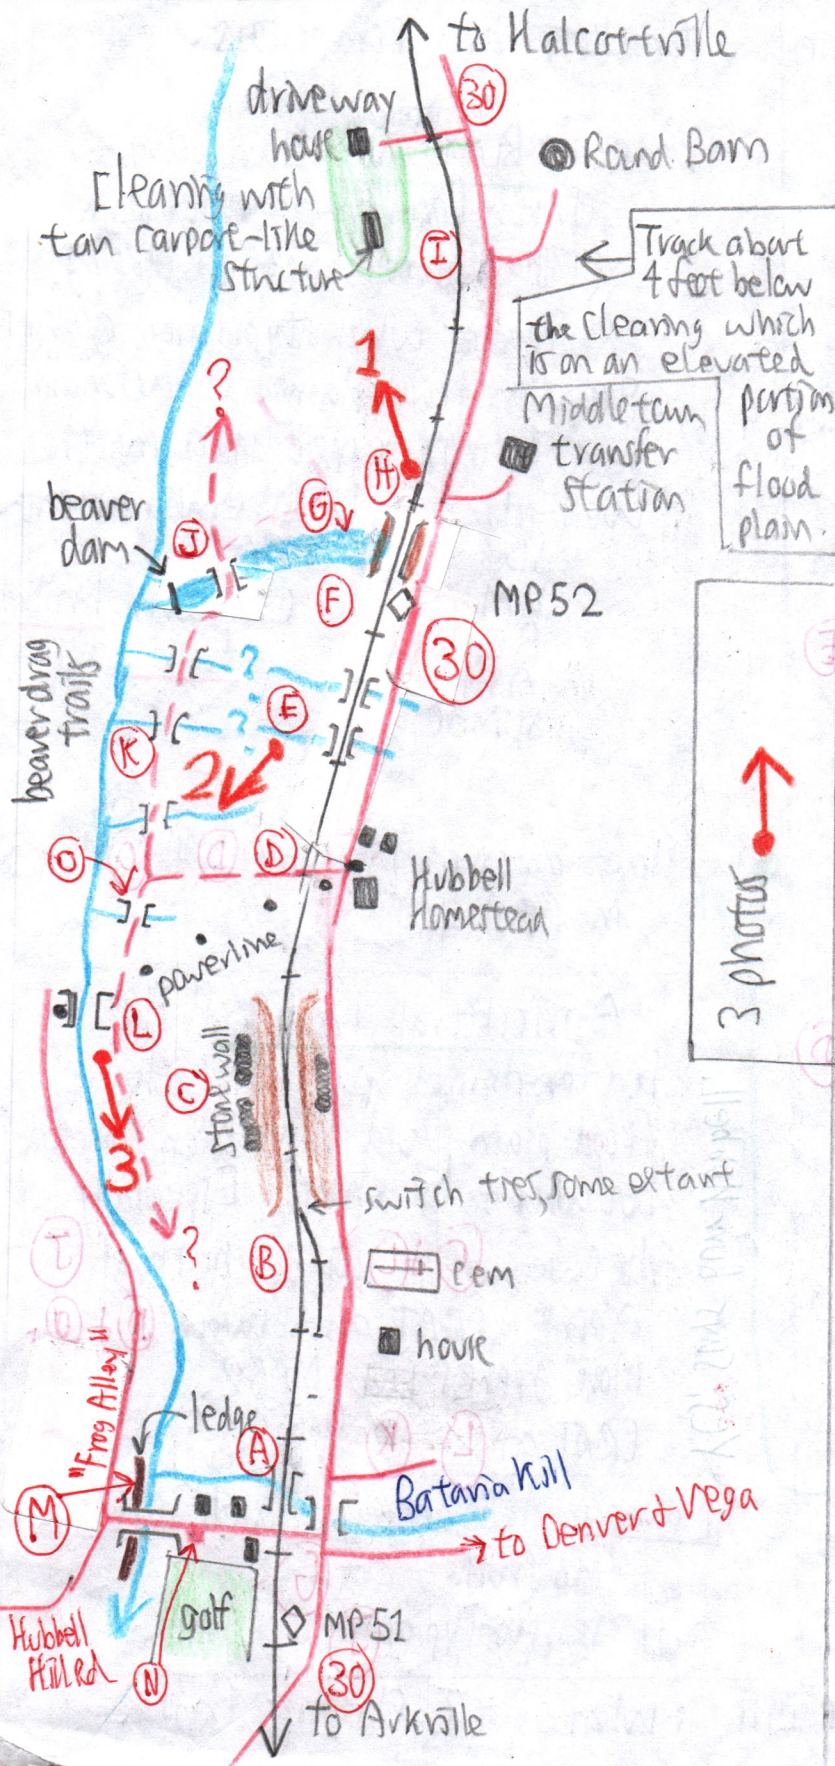 to Halcottville
30
driveway
house
Round Barn
Clearing with
tan carport-like
structure
I
Track about
4 feet below
the clearing which
is on an elevated
portion
of
flood
plain.
1
?
Middletown
transfer
station
H
G
beaver
dam
J
F
MP52
30
beaver drag
trails
?
?
E
K
2
O
D
Hubbell
Homestead
powerline
3 photos
L
C
stone wall
3
switch ties, some extant
?
B
cem
house
"Frog Alley"
ledge
A
M
Batavia Kill
to Denver & Vega
golf
MP51
Hubbell
Hill Rd
N
30
to Arkville